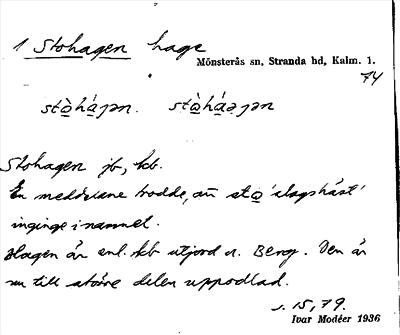 1 Stohagen hage
Mönsterås sn, Stranda hd, Kalm. l.
74
stò̱há̱jən. stò̱há̱əjən
Stohagen jb, kb.
En meddelare trodde, att sto̱ 'slagshäst'
inginge i namnet.
Hagen är enl. kb utjord u. Berg. Den är
nu till större delen uppodlad.
s. 15, 79.
Ivar Modéer 1936